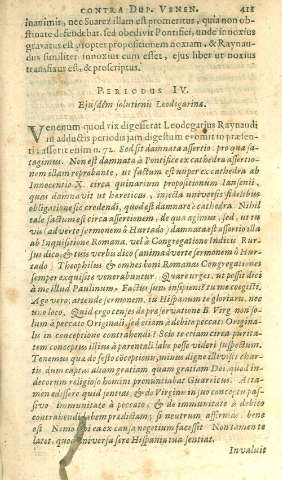 CONTRA DUP. VENEN. 421
inanimis, nec Suarez illam est promeritus, quia non ob-
stinatè defendebat. sed obedivit Pontifici, unde innoxius
gravatus est propter propositionem noxiam, & Raynau-
dus similiter innoxius cum esset, ejus liber ut noxius
transfixus est, & proscriptus.
PERIODUS IV.
Ejusdem solutionis Leodegarinæ.
Venenum quod vix digesserat Leodegarius Raynaudi
in adductis periodis jam digestum evomit in præsen-
ti: asserit enim n. 72. Sed sit damnata assertio, pro qua sa-
tagimus. Non est damnata à Pontifice ex cathedra assertio-
nem illam reprobante, ut factum est nuper ex cathedra ab
Innocentio X. circa quinarium propositionum Iansenii,
quas damnavit ut hæreticas, injecta universis fidelibus
obligatione sic credendi, quod est damnare è cathedra. Nihil
tale factum est circa assertionem, de qua agimus, sed, ut tu
vis (adverte sermonem à Hurtado) damnata est assertio illa
ab Inquisitione Romana. vel à Congregatione Indicis Rur-
sus dico, & tuis verbis dico (animadverte sermonem à Hur-
tado) Theophilus & omnes boni Romanas Congregationes
semper exquisitè venerabuntur. Quare urges, ut possis dici
à me illud Paulinum. Factus sum insipiens tu me coegisti,
Ago verò, attende sermonem, in Hispanum te gloriaris, nec
uno loco. Quid ergo censes de præservatione B. Virg. non so-
lùm à peccato Originali, sed etiam à debito peccati Origina-
lis in conceptione contrahendi? Scio te etiam circa purita-
tem conceptus illius à parentali labe posse videri suspectum.
Tenemus qua de festo cöceptionis, minus dignè illevisti char-
tis dum captas aliam gratiam quam gratiam Dei, quod in-
decorum religioso homini pronuntiabat Guarricus. Atta-
men edissere quid sentias, & de Virginis in suo conceptu pas-
sivo immunitate à peccato, & de immunitate à debito
contrahendi labem prædictam; si neutrum affirmas, bene
est Nemo tibi ea ex causa negotium facessit Non tamen te
latet, quod universa ferè Hispania tua sentiat.
Invaluit